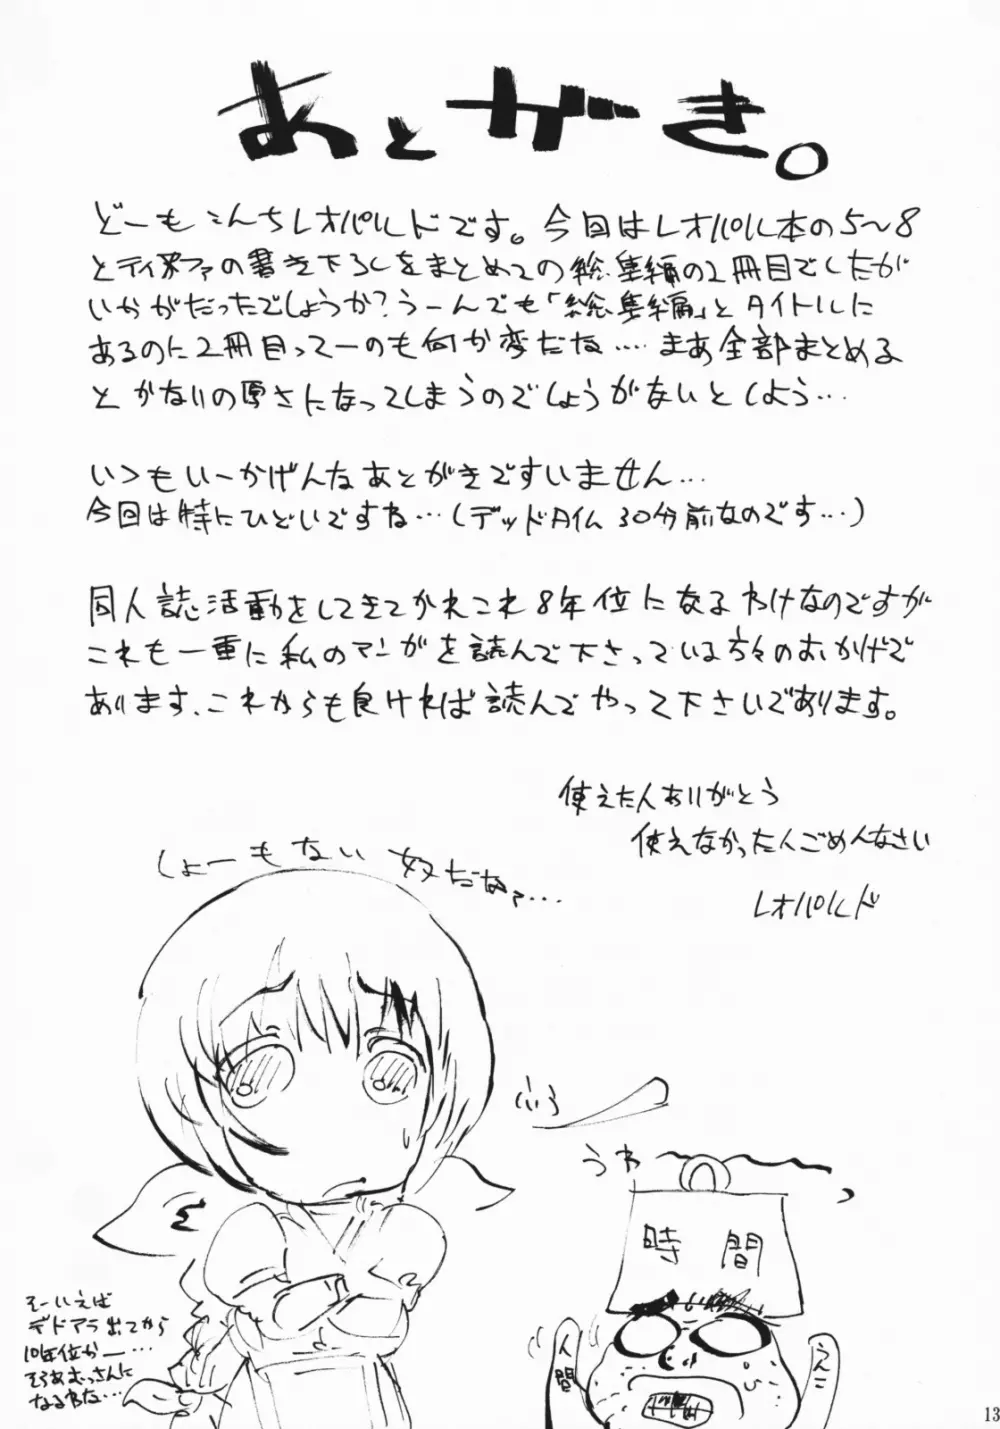 あとがき。
どーもこんちレオパルドです。今回はレオパル本の5〜8
とティファの書き下ろしをまとめての総集編の2冊目でしたが
いかがだったでしょうか?うーんでも「総集編」とタイトルに
あるのに2冊目ってーのも何か変だな…. まあ全部まとめる
とかなりの厚さになってしまうのでしょうがないとしよう…
いつもいーかげんなあとがきですいません…
今回は特にひどいですね…(デッドタイム30分前なのです…)
同人誌活動をしてきてかれこれ8年位になるわけなのですが
これも一重に私のマンガを読んで下さっている方々のおかげで
あります、これからも良ければ読んでやって下さいであります。
使えた人ありがとう
使えなかった人ごめんなさい
レオパルド
しょーもない奴だなァ…
うわ
時間
人間
そーいえば
デドアラ出てから
10年位かー…
そりゃあおっさんに
なるわな…
13